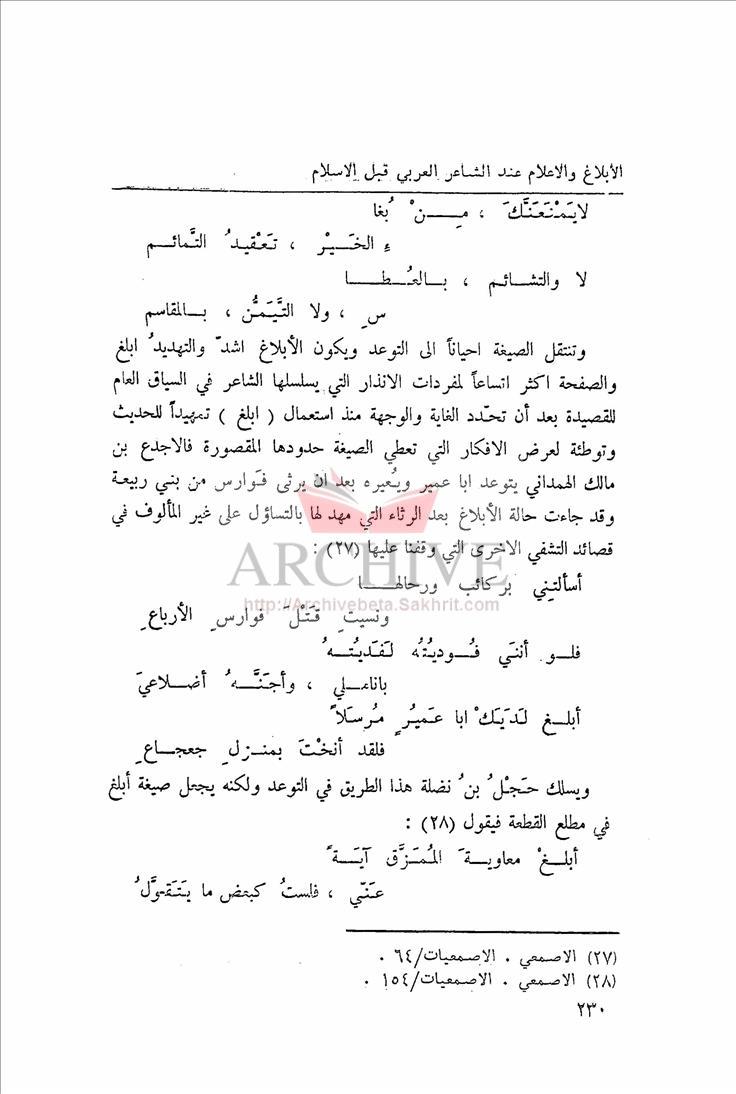 الأبلاغ والاعلام عند الشاعر العربي قبل الاسلام
لايَمْنَعَنَّكَ ، مِــنْ بُغا
ءِ الخَــيْرِ ، تَعْقيدُ التَّمائــم
لا والتشائــم ، بــالعُــطــا
سِ ، ولا التَّيَمُّن ، بــالمقاسم
وتنتقل الصيغة احياناً الى التوعد ويكون الأبلاغ اشدّ والتهديدُ ابلغ
والصفحة اكثر اتساعاً لمفردات الانذار التي يسلسلها الشاعر في السياق العام
للقصيدة بعد أن تحدّد الغاية والوجهة منذ استعمال ( ابلغ ) تمهيداً للحديث
وتوطئة لعرض الافكار التي تعطي الصيغة حدودها المقصورة فالاجدع بن
مالك الهمداني يتوعد ابا عمير ويُعيره بعد ان يرثى فَوارس من بني ربيعة
وقد جاءت حالة الأبلاغ بعد الرثاء التي مهد لها بالتساؤل على غير المألوف في
قصائد التشفي الاخرى التي وقفنا عليها (٢٧) :
أسألتِني بركائب ورحالهــا
ونسيتِ قَتْلَ فوارسِ الأرباعِ
فلــو أنني فُــوديتُه لَفَديتُــهُ
بانامــلي ، وأجَنَّــهُ أضــلاعيَ
أبلــغ لَدَيَكْ ابا عَميُرٍ مُرسَلاً
فلقد أنختَ بمنــزلٍ جعجــاعِ
ويسلك حَجْلُ بنُ نضلة هذا الطريق في التوعد ولكنه يجعل صيغة أبلغ
في مطلع القطعة فيقول (٢٨) :
أبلــغْ معاويــةَ المُمَزَّق آيَــةً
عَنّي ، فلستُ كبعض ما يَتَقوَّلُ
(٢٧) الاصمعي . الاصمعيات/٦٤ .
(٢٨) الاصمعي . الاصمعيات/١٥٤ .
٢٣٠
ARCHIVE
http://Archivebeta.Sakhrit.com